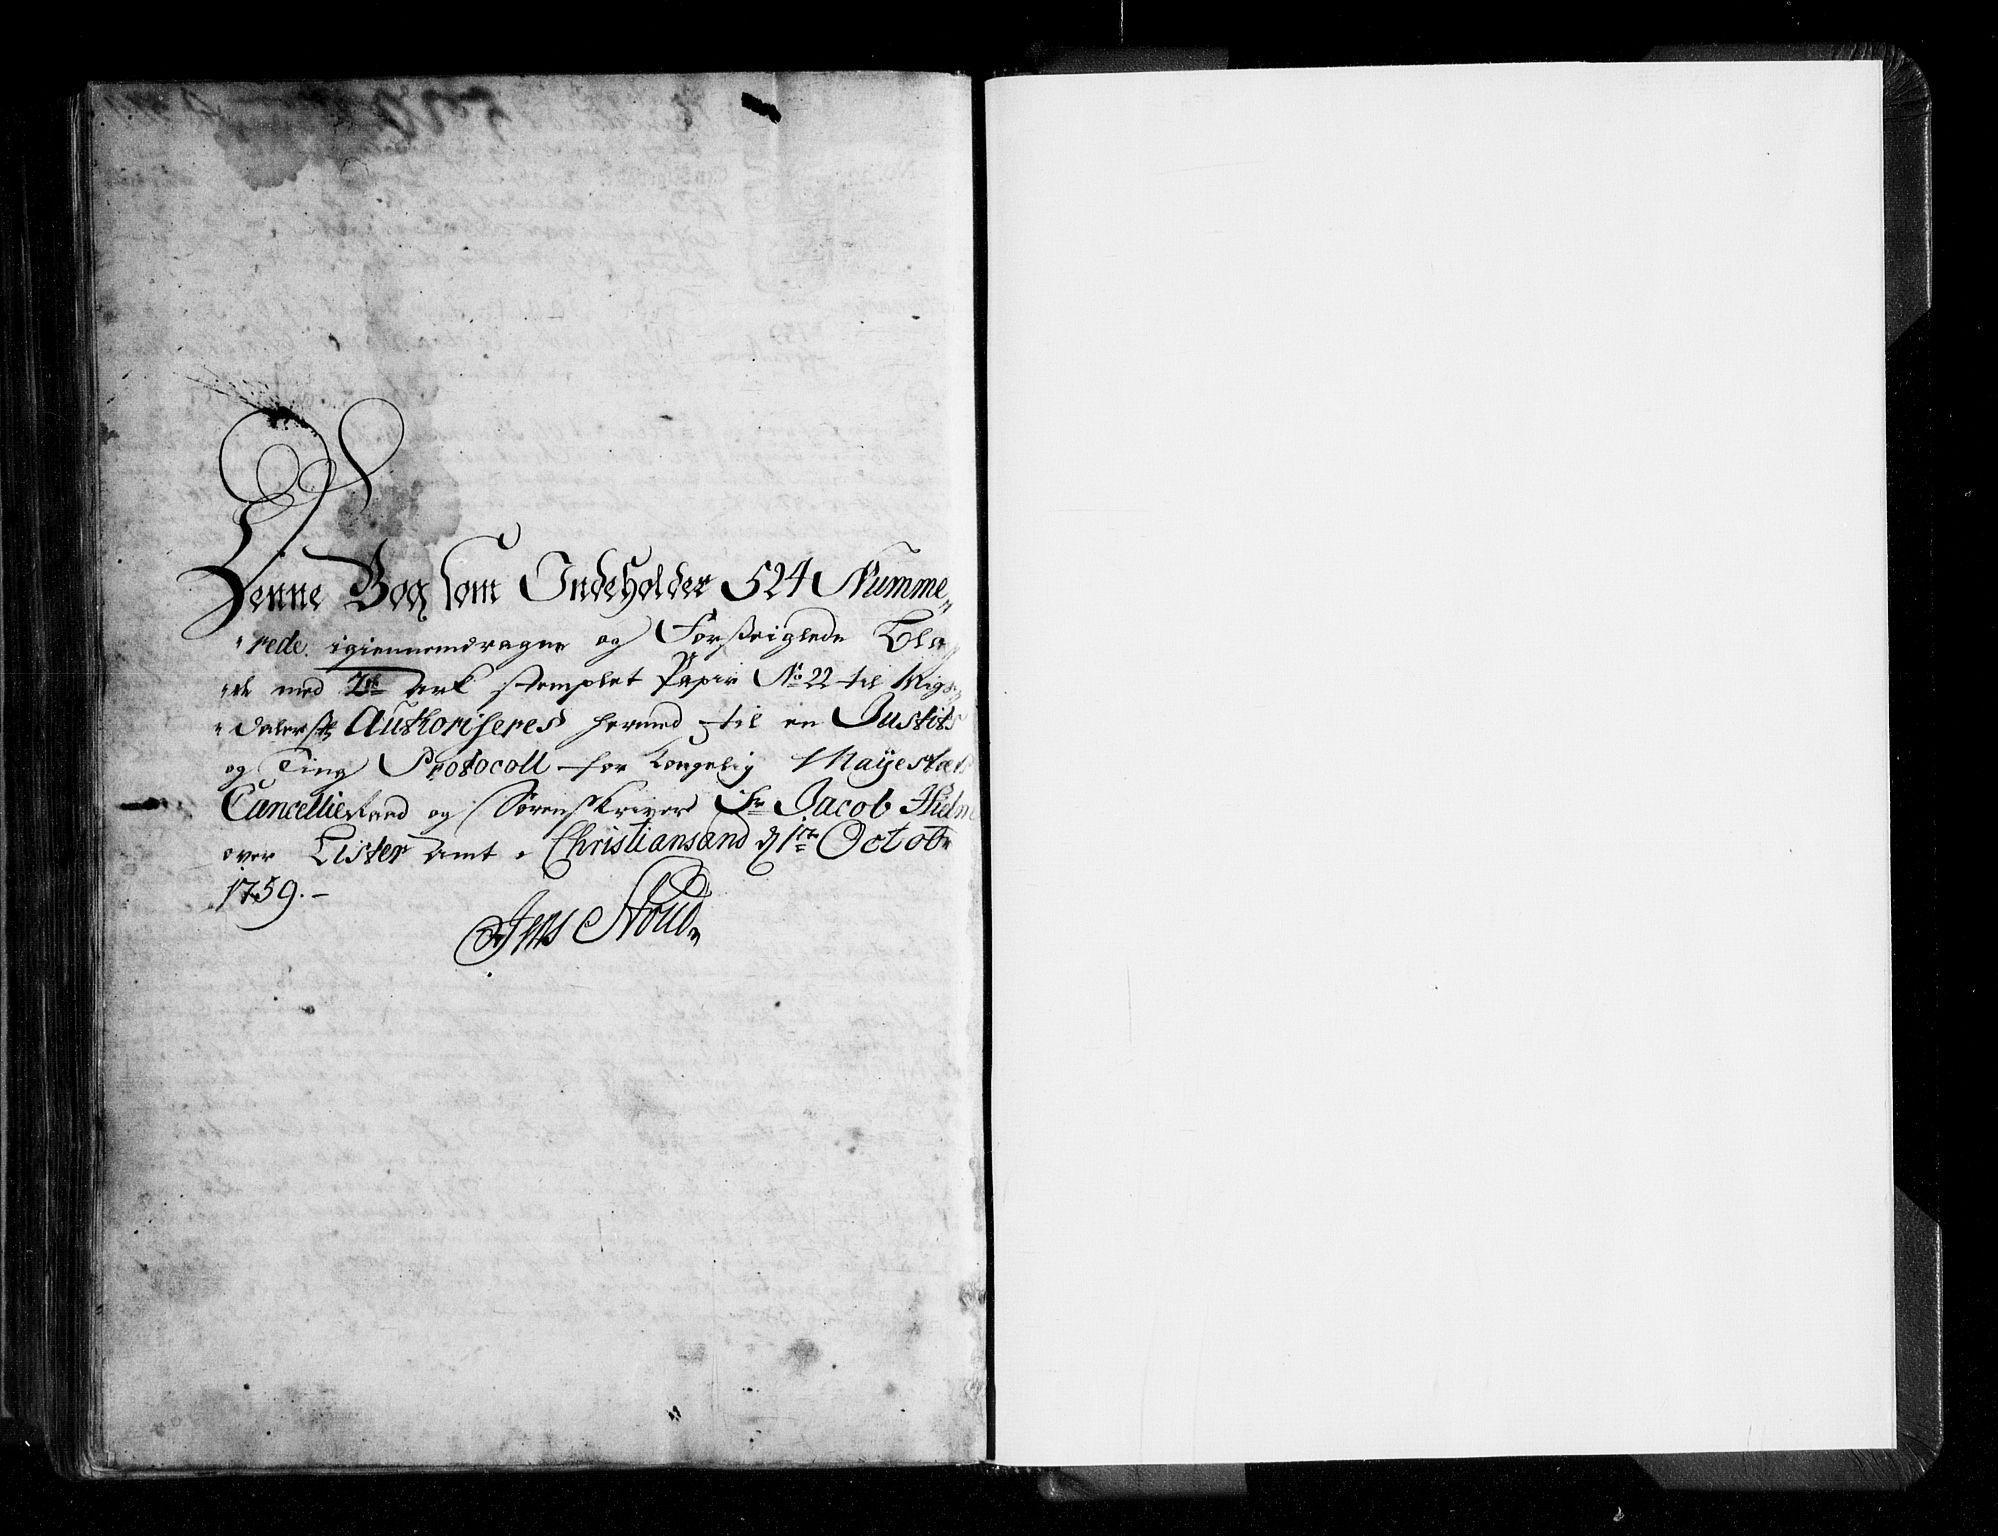 Denne Bog som Indeholder 524 Numme„
„rede. igiennemdragne og Forseiglede Bla„
„de med Ark stemplet Papir No 22 til Rigs„
„Daler Authoriseres hermed til en Justits
og Ting Protocoll for Kongelig Mayestæts
Cancellie Raad og Sorenskriver Hr Jacob Hielm
over Lister Amt, Christiansand d 1te Octobr
1759.-
Jens Stoud